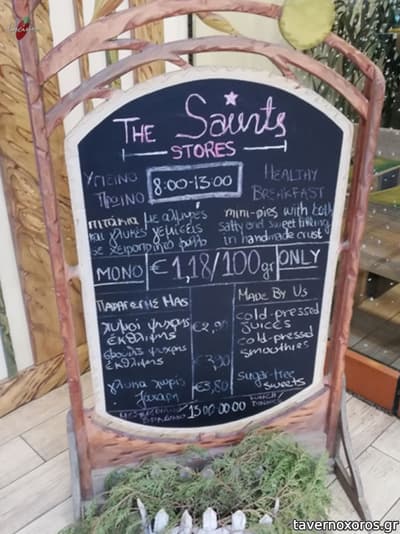 THE Saints
STORES
ΥΓΙΕΙΝΟ
ΠΡΩΙΝΟ
8:00-13:00
HEALTHY
BREAKFAST
πιτάκια με αλμυρές
και γλυκές γεμίσεις
σε χειροποίητο φύλλο
mini-pies with both
salty and sweet filling
in handmade crust
ΜΟΝΟ € 1,18/100gr ONLY
ΠΑΡΑΓΩΓΗΣ ΜΑΣ
χυμοί ψυχρής
έκθλιψης €2,90
ψυχρής
έκθλιψης €3,90
γλυκα χωρίς
ζαχαρη €3,80
MADE BY US
cold-pressed
juices
cold-pressed
smoothies
sugar-free
sweets
ΜΕΣΗΜΕΡΙΑΝΟ
ΒΡΑΔΙΝΟ
15:00-00:00
LUNCH
DINNER
tavernoxoros.gr